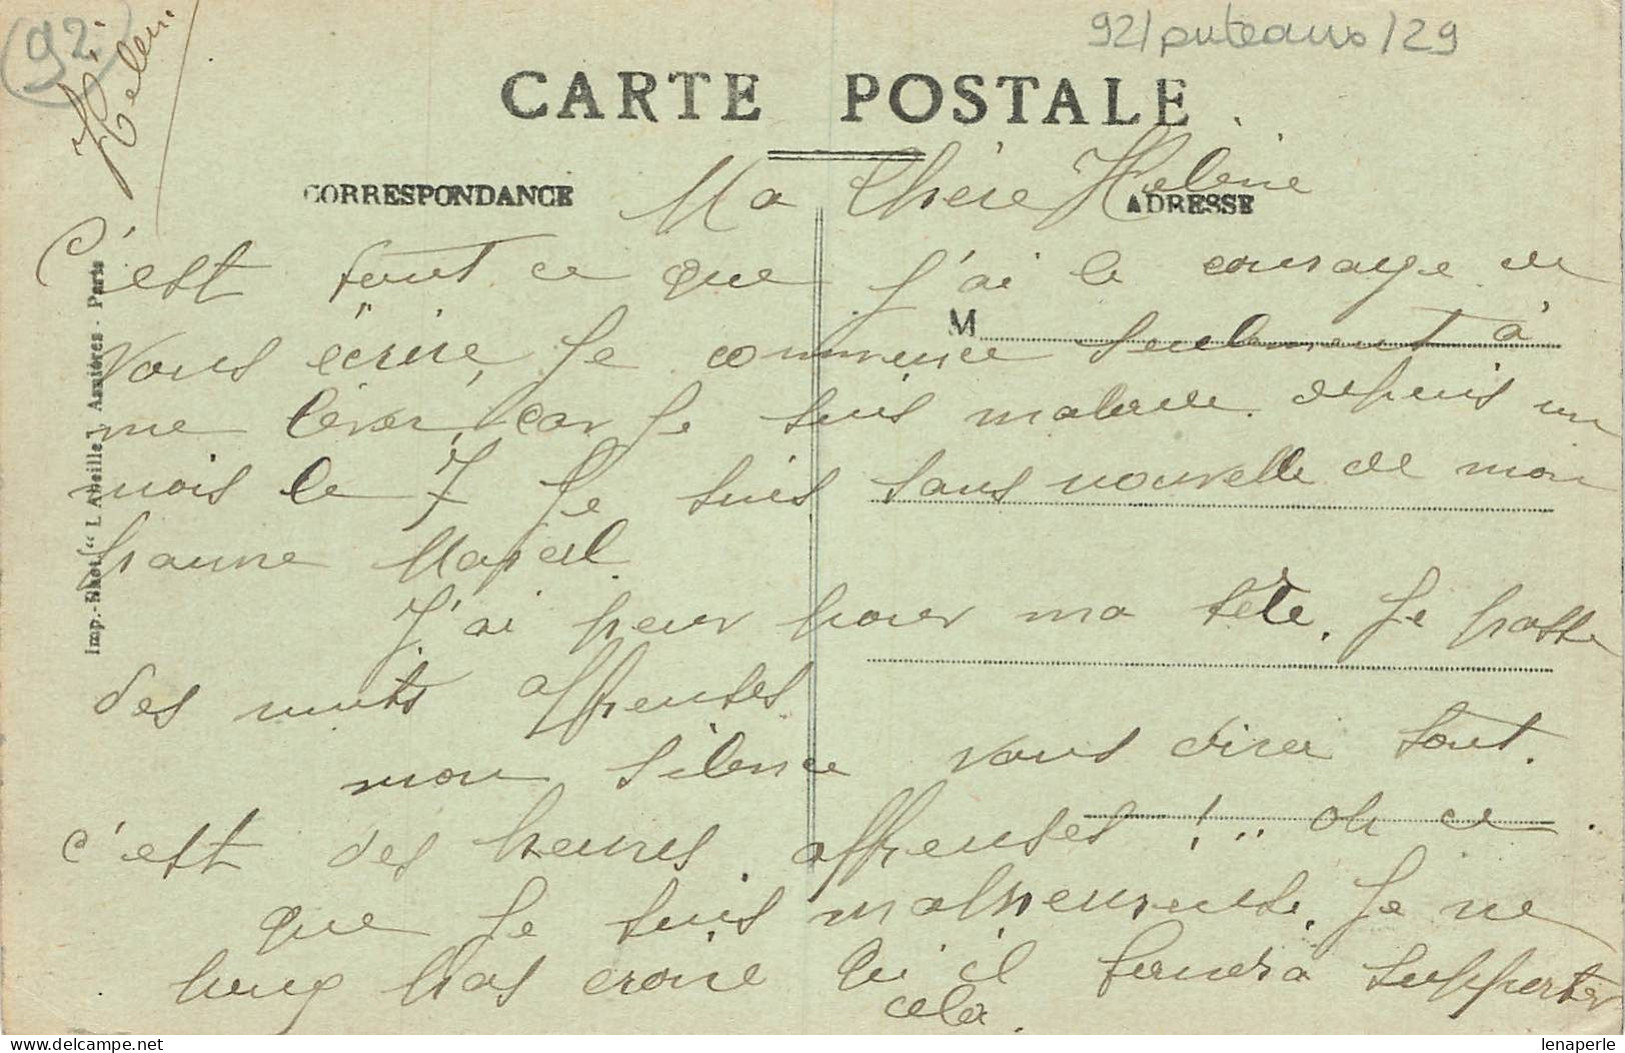 92
Helene
92/puteaux/29
CARTE POSTALE
CORRESPONDANCE
ADRESSE
Ma Chère Helène
C'est tout ce que j'ai le courage de
M
vous écrire, Je commence seulement à
me lever, car Je suis malade depuis un
mois le 7 Je suis sans nouvelle de mon
pauvre Marcel
J'ai peur pour ma tête. Je passe
des nuits affreuses
mon silence vous dira tout.
c'est des heures affreuses !.. oh ce
que Je suis malheureuse. Je ne
pas croire qu'il faudra supporter
cela.
Imp.-Phot. "L'Abeille", Asnières - Paris
delcampe.net
lenaperle